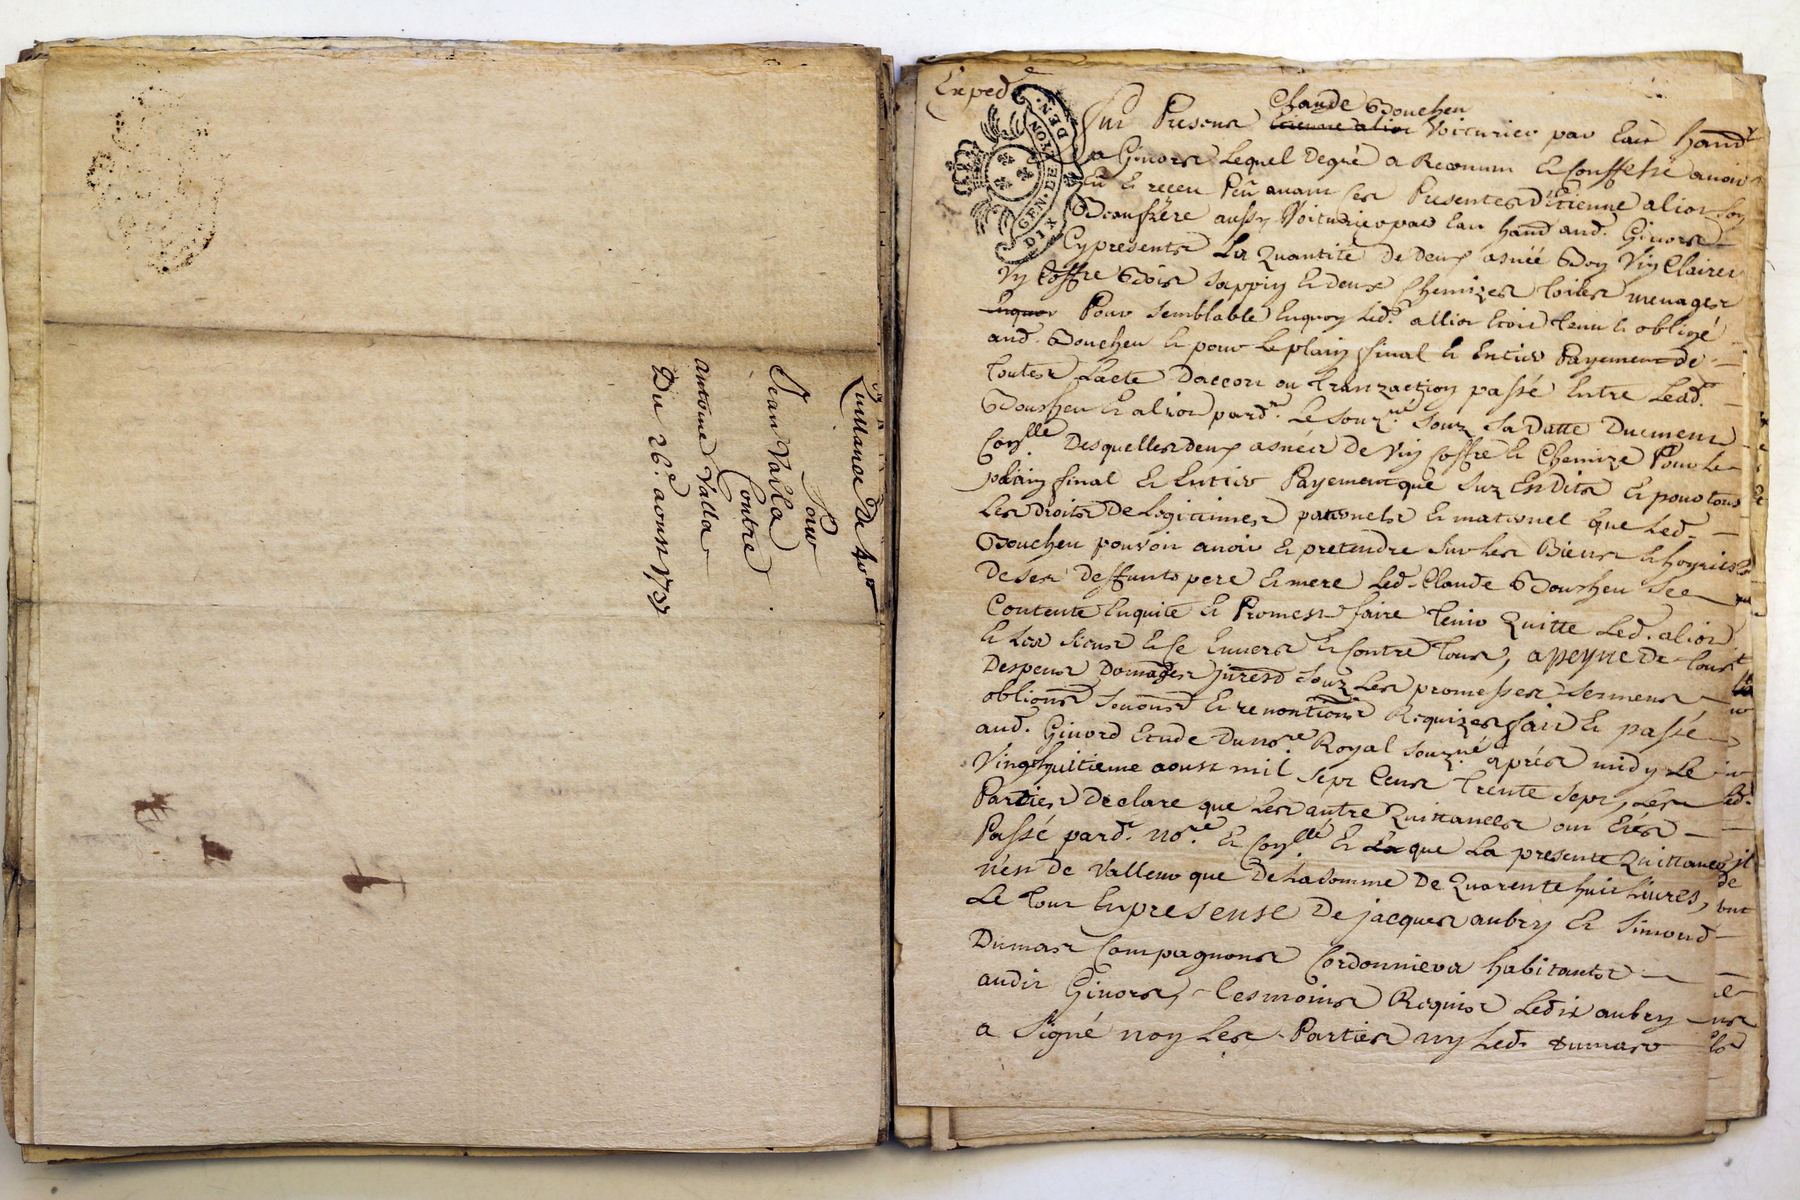 Quittance De
Pour
Jean Valla
Contre
antoine Valla
Du 26e aoust 1737
Exped.e
GEN. DE LYON
DIX DEN.
Claude Boucheu
fut Present Etienne alior Voiturier par Eau hand.t
a Givors Lequel Degré a Reconnu et Confessé avoir
Eu et reçeu peu avant ces Presentes d'Etienne alior son
Beaufrere aussy Voiturier par Eau hand. aud. Givors
Cypresents La Quantité De Deux asnéé Bon Vin Clairet
Un Coffre Bois Sappin et deux Chemizes toiles menages
Pour semblable Enquoy Led. allior Etoit tenu et obligé
aud. Boucheu et pour Le plain final et Entier Payement de
toutes Lacte Daccort ou tranzaction passé Entre Lesd.
Boucheu et alior pard. Le souz.né souz Sa Datte Duement
Con.llé Desquelles deux asnées de Vin Coffre et Chemize Pour Le
plain final et Entier Payement que Sus Endits et pour tous
Les droits De Legitimes paternels et maternel que Led.
Boucheu pouvoit avoir et pretendre Sur Les Biens et hoyries
De ses deffunts pere et mere Led. Claude Boucheu See
Contente Enquite et Promest faire tenir Quitte Led. alior
et Les siens et Ce Envers et Contre tous, a peyne De tous
Despens Domages jurend souz Les promesses sermens
obliôns soumis.. et renontiôns Requizes fait et passé
aud. Givord Etude Du no.re Royal souz.né aprés midy Le
Vingthuitieme aoust mil sept Cens Trente sept, Les
Parties Declare que Les autre Quittances ont Etés
Passé pard. no.re et Con.llé et La que La presente Quittance
n'est de Valleur que De La somme De Quarente huit Livres,
Le tout En presense De jacques aubry et Simond
Dumas Compagnons Cordonniers habitants
audit Givors, tesmoins Requis Ledit aubry
a Signé non Les Parties ny Led. Dumas